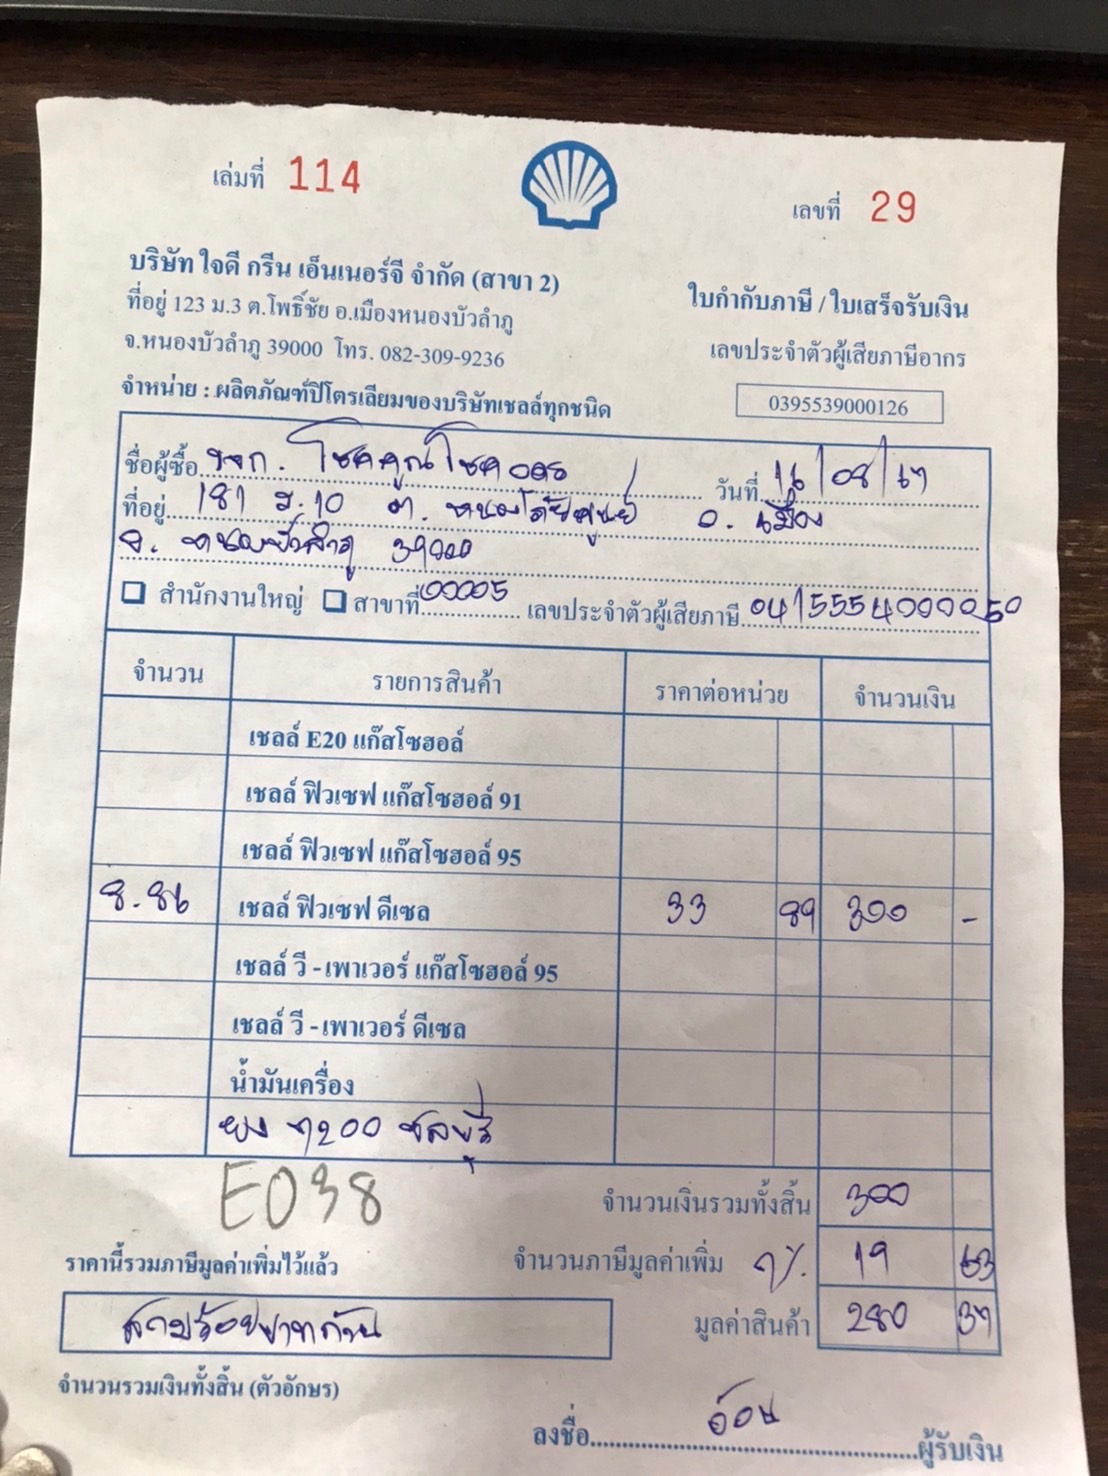 เล่มที่ 114
เลขที่ 29
บริษัท ใจดี กรีน เอ็นเนอร์จี จำกัด (สาขา 2)
ที่อยู่ 123 ม.3 ต.โพธิ์ชัย อ.เมืองหนองบัวลำภู
จ.หนองบัวลำภู 39000 โทร. 082-309-9236
จำหน่าย : ผลิตภัณฑ์ปิโตรเลียมของบริษัทเชลล์ทุกชนิด
ใบกำกับภาษี / ใบเสร็จรับเงิน
เลขประจำตัวผู้เสียภาษีอากร
0395539000126
ชื่อผู้ซื้อ หจก. โชคคูณโชค วันที่ 16/08/67
ที่อยู่ 181 ม.10 ต. อ. เมือง
จ. หนองบัวลำภู 39000
สำนักงานใหญ่ สาขาที่ 00005 เลขประจำตัวผู้เสียภาษี 0415554000050
จำนวน รายการสินค้า ราคาต่อหน่วย จำนวนเงิน
เชลล์ E20 แก๊สโซฮอล์
เชลล์ ฟิวเซฟ แก๊สโซฮอล์ 91
เชลล์ ฟิวเซฟ แก๊สโซฮอล์ 95
8.86 เชลล์ ฟิวเซฟ ดีเซล 33 89 300 -
เชลล์ วี - เพาเวอร์ แก๊สโซฮอล์ 95
เชลล์ วี - เพาเวอร์ ดีเซล
น้ำมันเครื่อง
ผง 7200 ชลบุรี
E038
จำนวนเงินรวมทั้งสิ้น 300
ราคานี้รวมภาษีมูลค่าเพิ่มไว้แล้ว จำนวนภาษีมูลค่าเพิ่ม 7% 19 63
สามร้อยบาทถ้วน มูลค่าสินค้า 280 37
จำนวนรวมเงินทั้งสิ้น (ตัวอักษร)
ลงชื่อ อ้อย ผู้รับเงิน